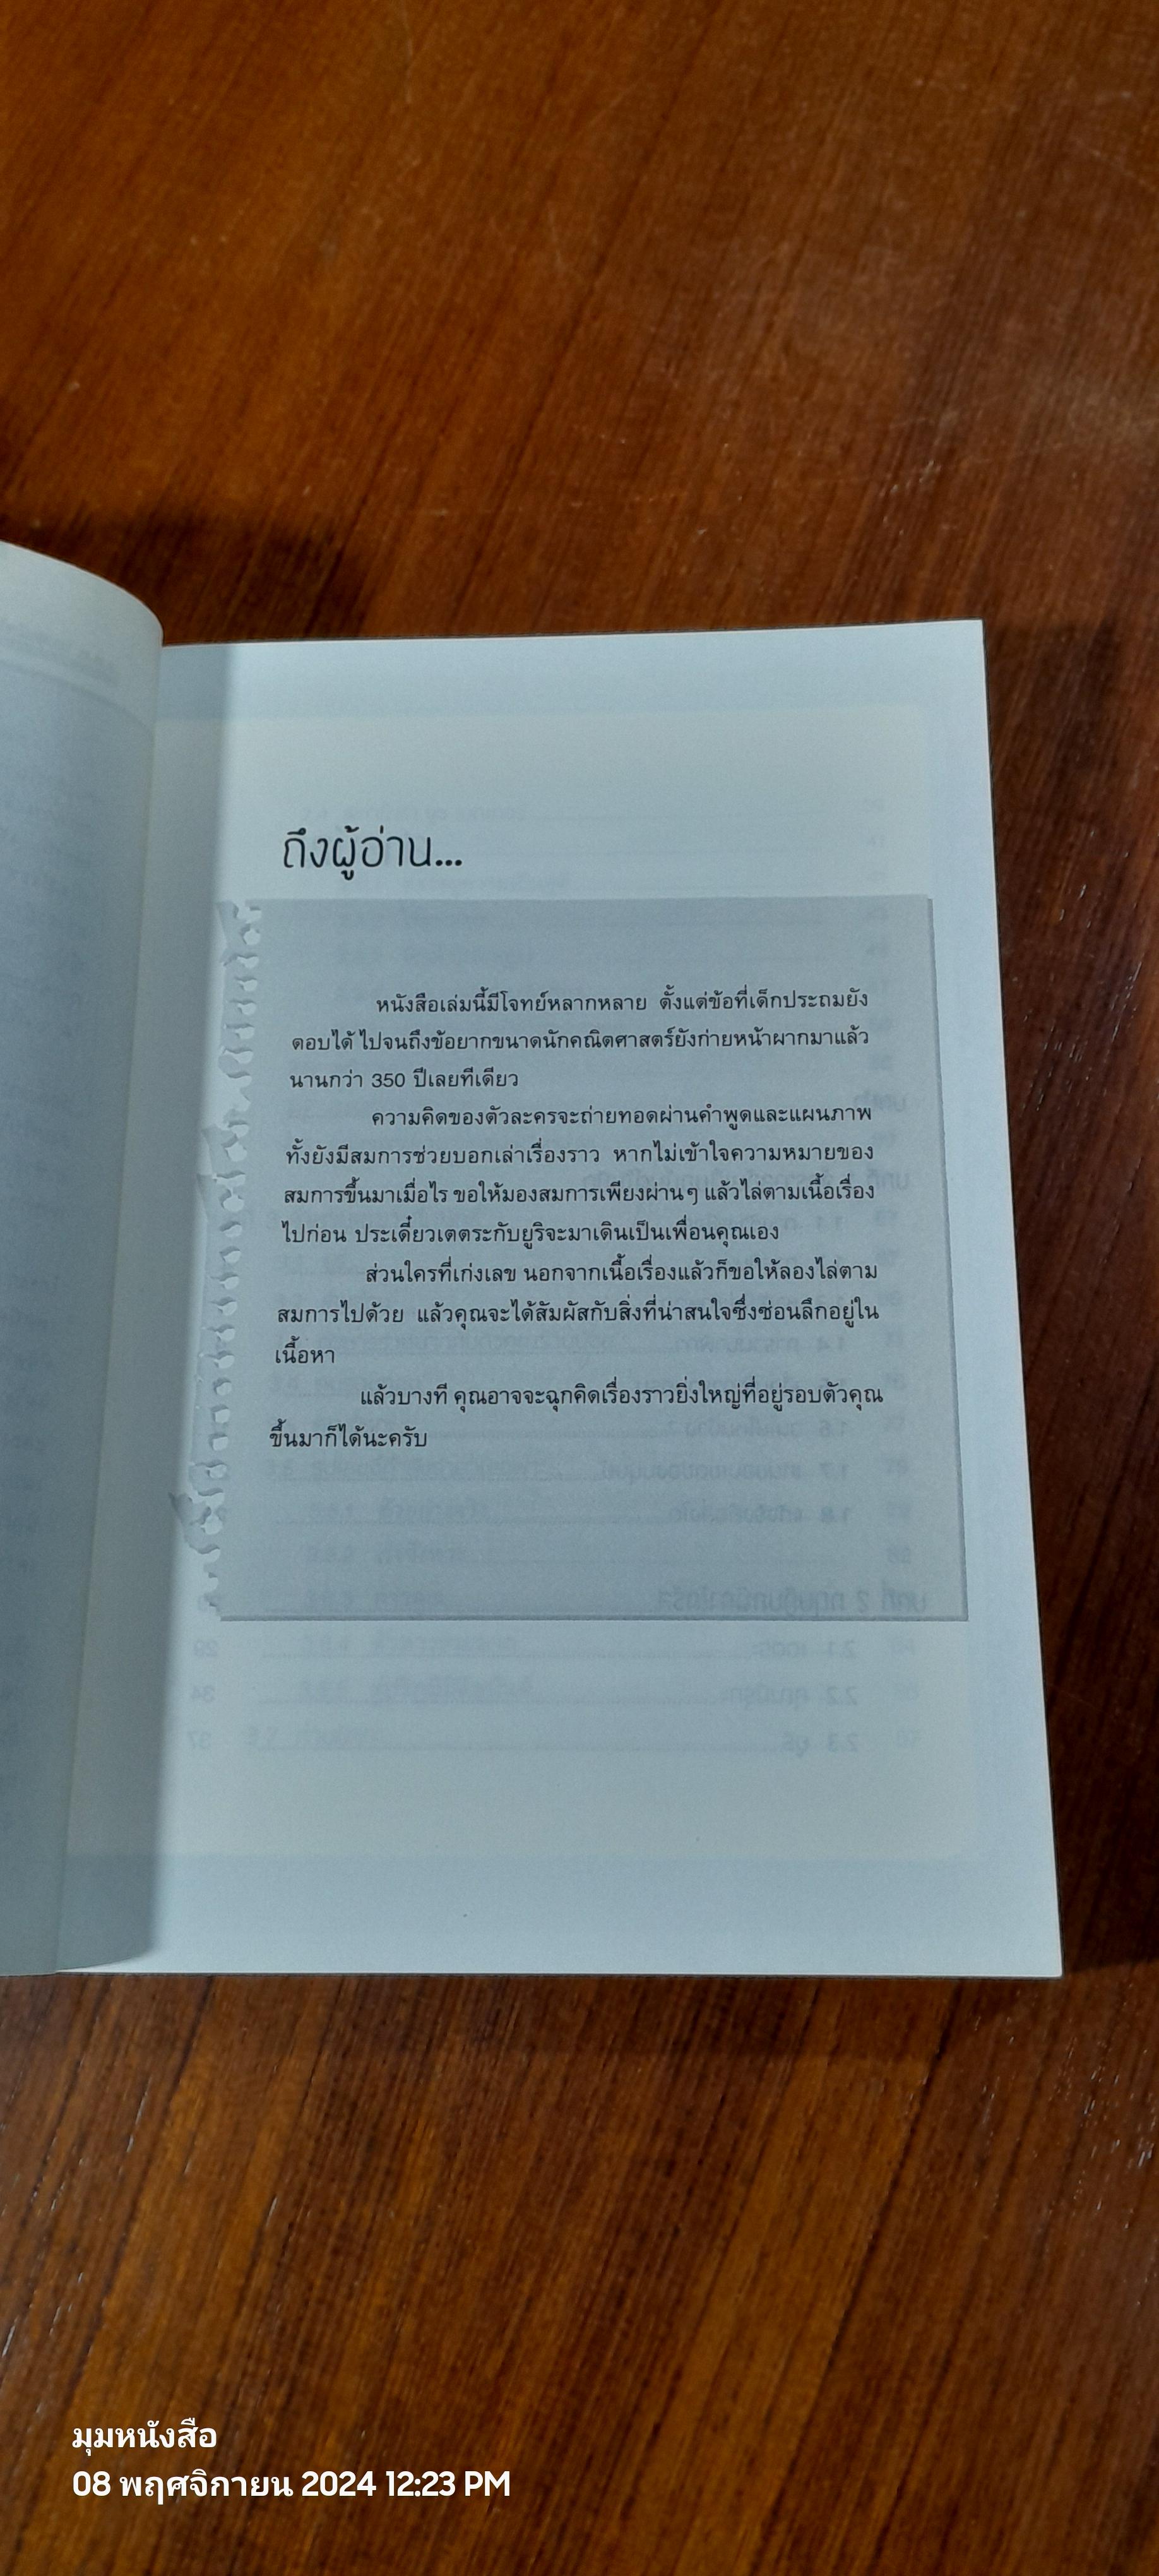 ถึงผู้อ่าน...
หนังสือเล่มนี้มีโจทย์หลากหลาย ตั้งแต่ข้อที่เด็กประถมยัง
ตอบได้ ไปจนถึงข้อยากขนาดนักคณิตศาสตร์ยังก่ายหน้าผากมาแล้ว
นานกว่า 350 ปีเลยทีเดียว
ความคิดของตัวละครจะถ่ายทอดผ่านคำพูดและแผนภาพ
ทั้งยังมีสมการช่วยบอกเล่าเรื่องราว หากไม่เข้าใจความหมายของ
สมการขึ้นมาเมื่อไร ขอให้มองสมการเพียงผ่านๆ แล้วไล่ตามเนื้อเรื่อง
ไปก่อน ประเดี๋ยวเตตระกับยูริจะมาเดินเป็นเพื่อนคุณเอง
ส่วนใครที่เก่งเลข นอกจากเนื้อเรื่องแล้วก็ขอให้ลองไล่ตาม
สมการไปด้วย แล้วคุณจะได้สัมผัสกับสิ่งที่น่าสนใจซึ่งซ่อนลึกอยู่ใน
เนื้อหา
แล้วบางที คุณอาจจะฉุกคิดเรื่องราวยิ่งใหญ่ที่อยู่รอบตัวคุณ
ขึ้นมาก็ได้นะครับ
มุมหนังสือ
08 พฤศจิกายน 2024 12:23 PM